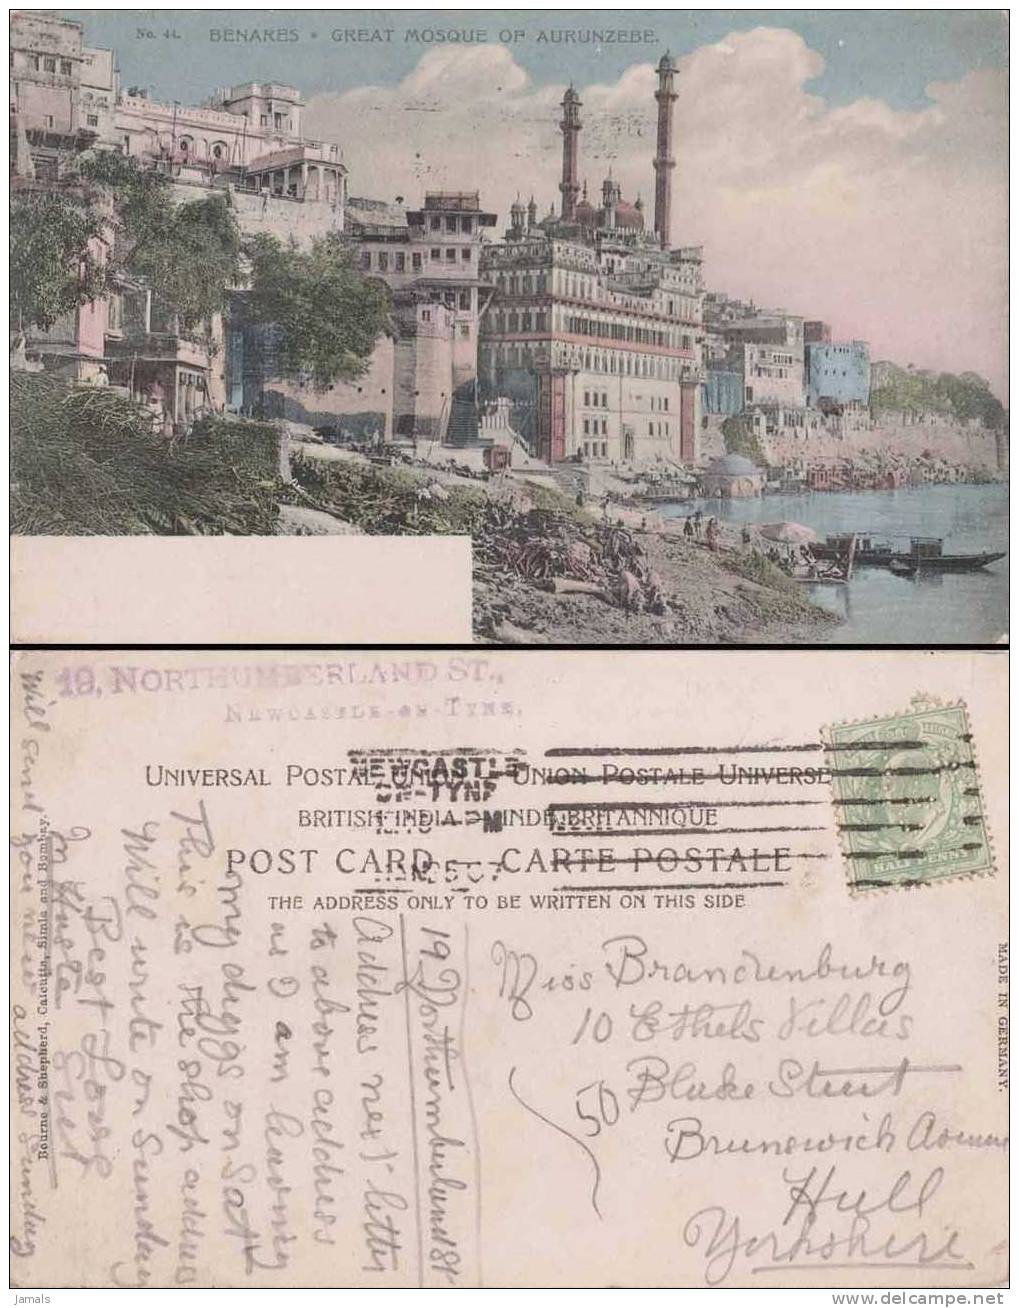 No. 44. BENARES • GREAT MOSQUE OF AURUNZEBE.
19, NORTHUMBERLAND ST.,
NEWCASTLE-ON-TYNE.
UNIVERSAL POSTAL UNION – UNION POSTALE UNIVERSE
BRITISH INDIA – INDE BRITANNIQUE
POST CARD – CARTE POSTALE
THE ADDRESS ONLY TO BE WRITTEN ON THIS SIDE
NEWCASTLE
ON-TYNE
HALFPENNY
Miss Brandenburg
10 Ethels Villas
Blake Street
50
Brunswich Avenue
Hull
Yorkshire
19 Northumberland St
Address next letter
to above address
as I am leaving
my diggs on Sat
This is the shop address
Will write on Sunday
Best Love
In Haste
Will send you new address Sunday
Bourne & Shepherd, Calcutta, Simla and Bombay.
MADE IN GERMANY.
Jamals
delcampe.net